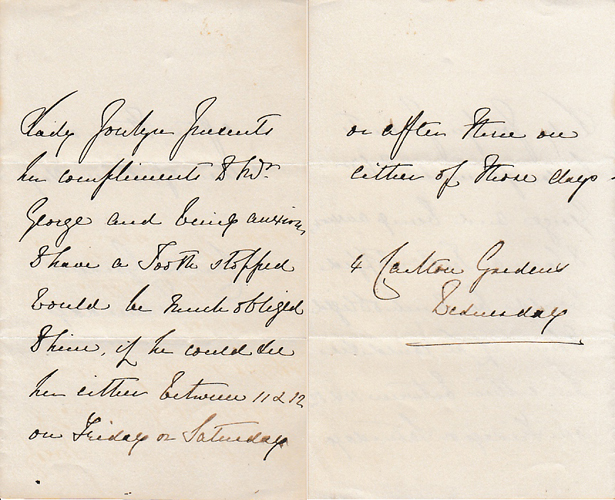 Lady Jocelyn presents
her compliments to Mr
George and being anxious
to have a Tooth stopped
would be much obliged
to him, if he could see
her either between 11 & 12
on Friday or Saturday
or after three on
either of those days -
4 Carlton Gardens
Wednesday